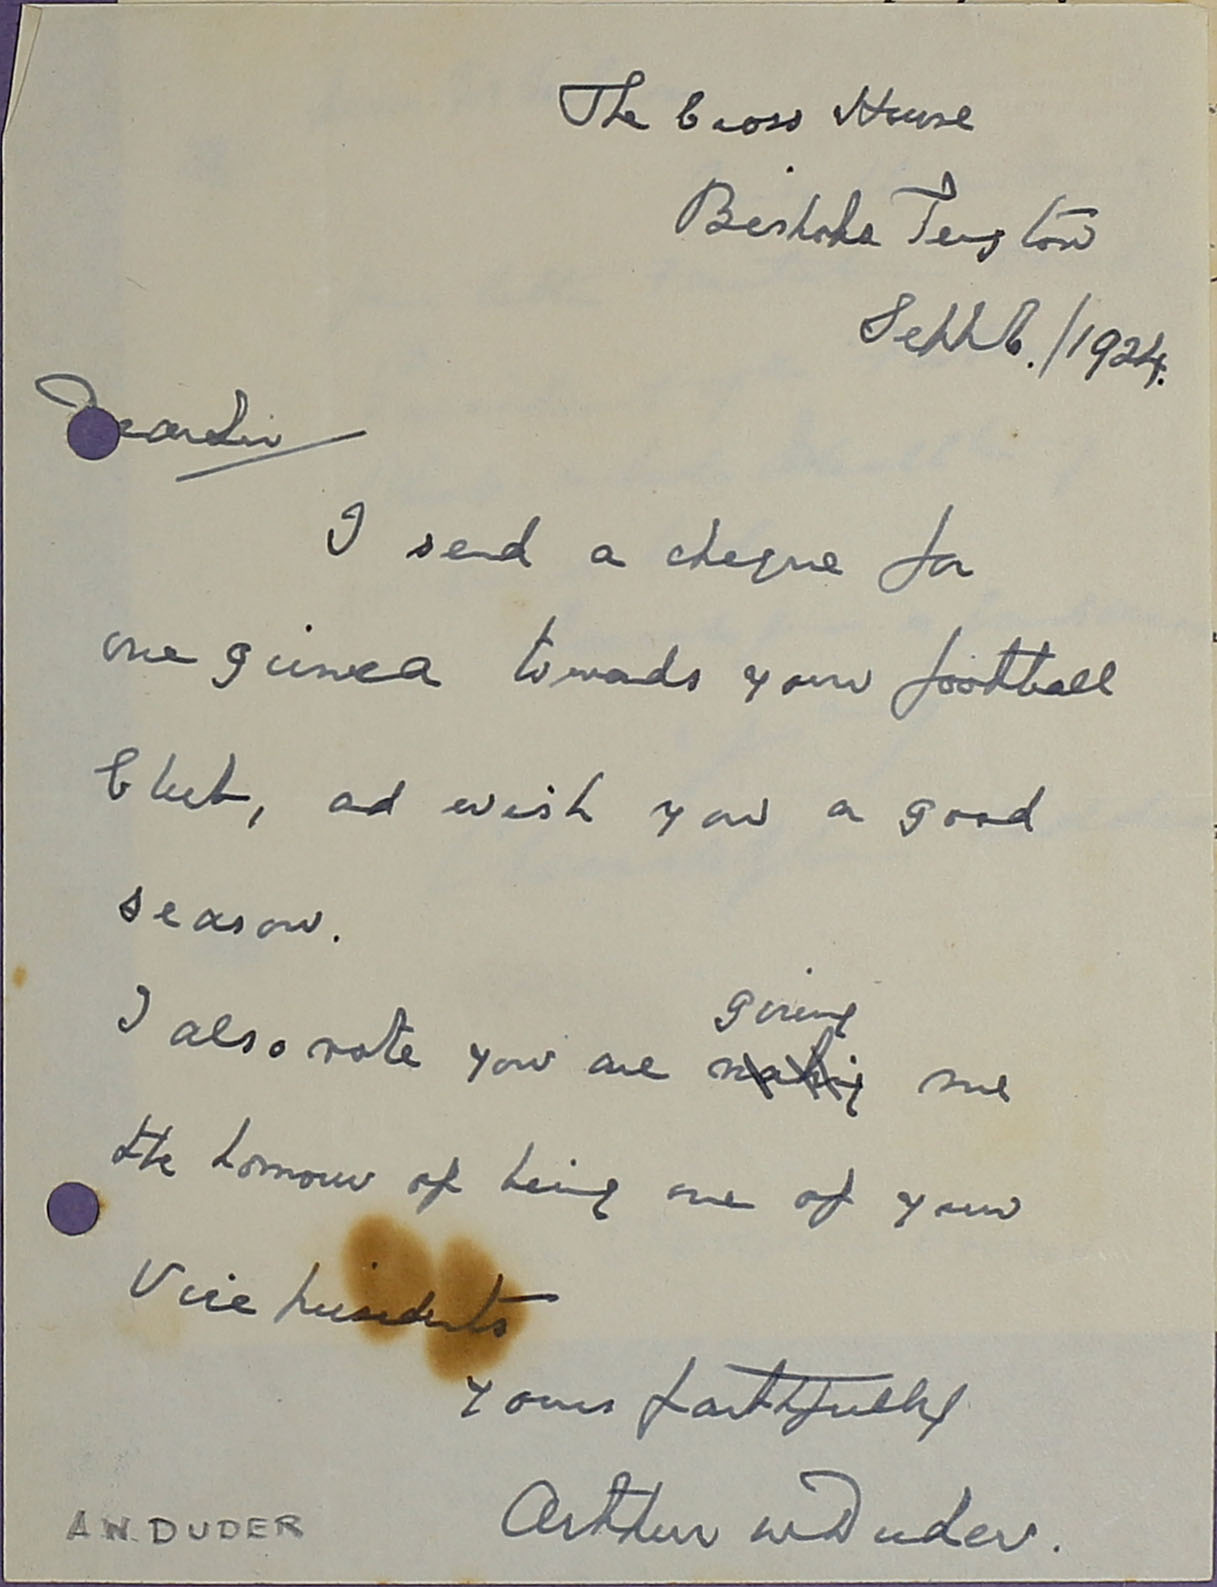 The Cross House
Bishops Teignton
Septb./1924.
Dear Sir
I send a cheque for
one guinea towards your football
Club, and wish you a good
season.
giving
I also note you are making me
the honour of being one of your
Vice presidents
Yours faithfully
Arthur W Duder.
A.W. DUDER